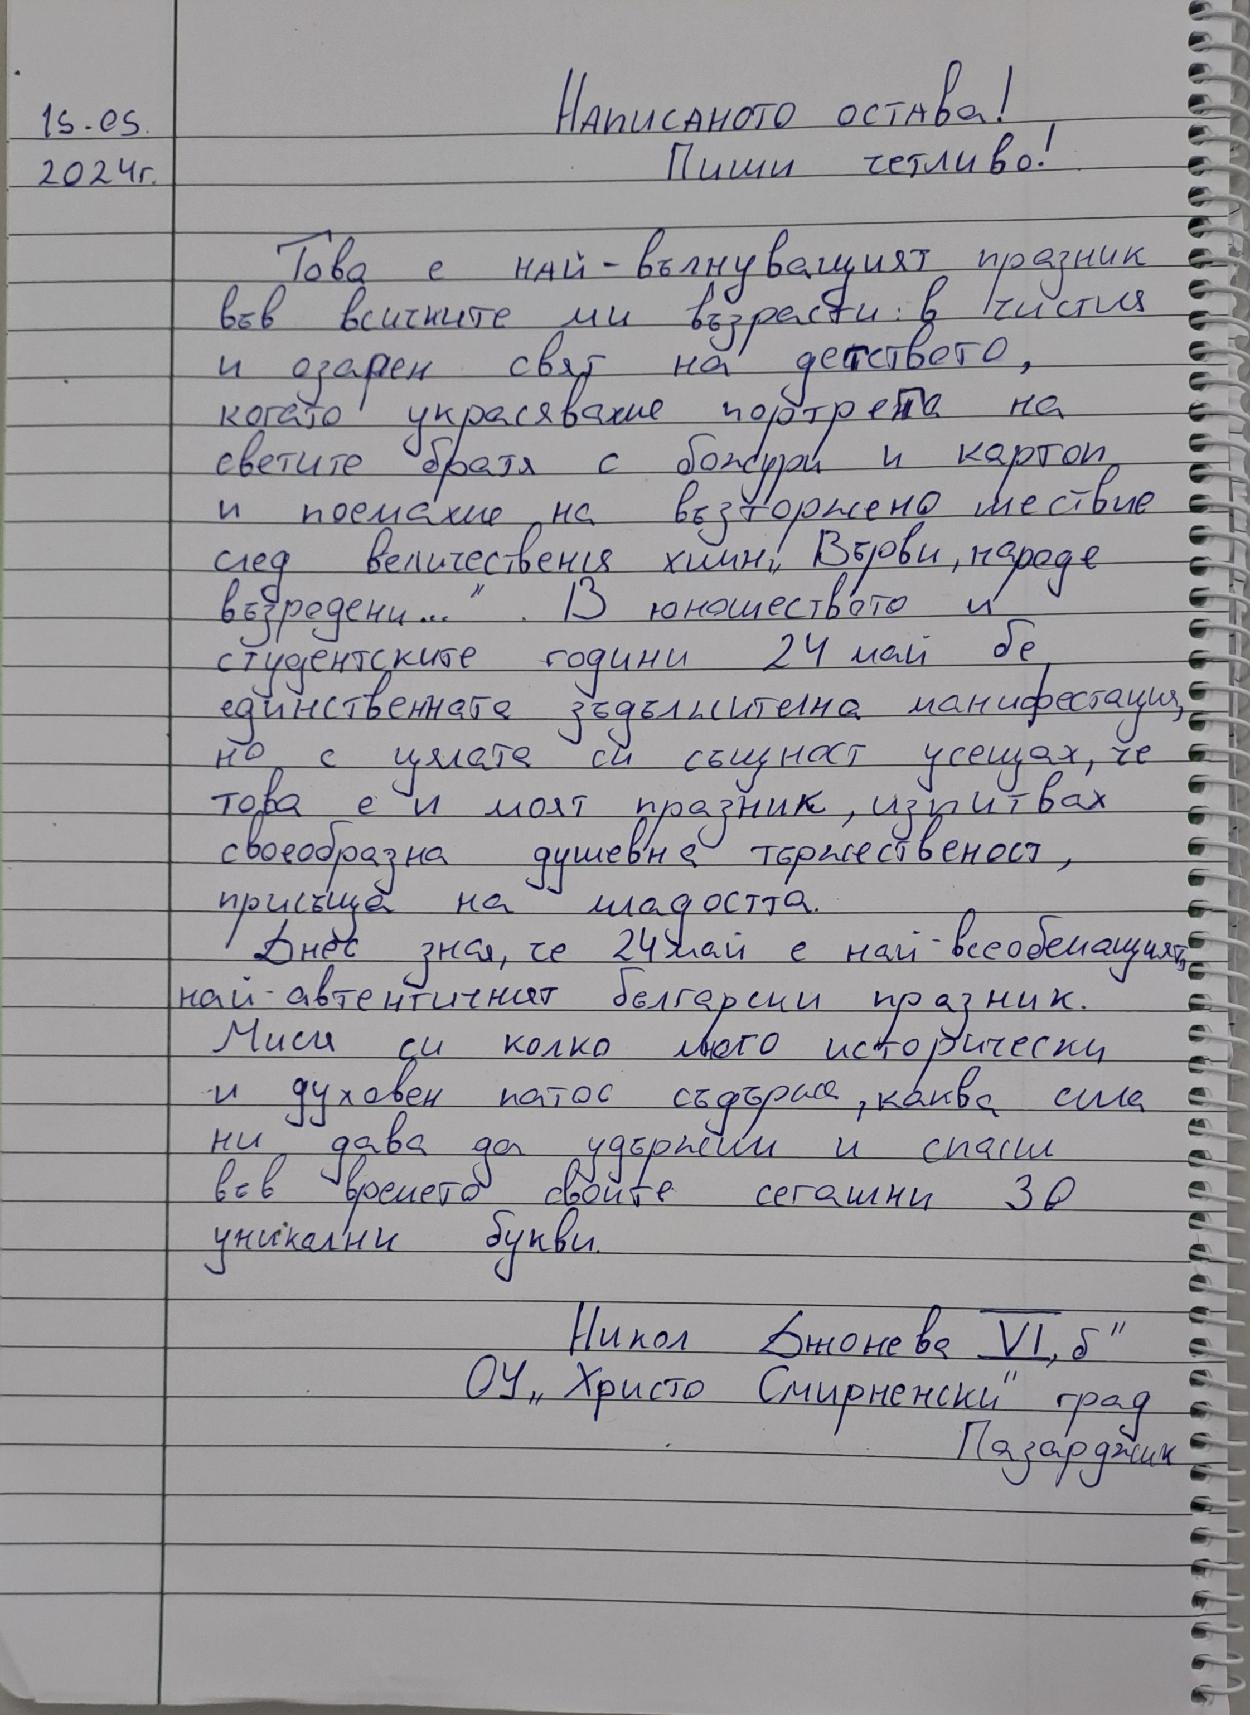 15.05.
2024г.
Написаното остава!
Пиши четливо!
Това е най-вълнуващият празник
във всичките ми възрасти: в чистия
и озарен свят на детството,
когато украсявахме портрета на
светите братя с божури и картон
и поемахме на възторжено шествие
след величествения химн „Върви, народе
възродени..." . В юношеството и
студентските години 24 май бе
единствената задължителна манифестация,
но с цялата си същност усещах, че
това е и моят празник, изпитвах
своеобразна душевна тържественост,
присъща на младостта.
Днес зная, че 24 май е най-всеобемащият,
най-автентичният български празник.
Мисля си колко много исторически
и духовен патос съдържа, каква сила
ни дава да удържим и спасим
във времето своите сегашни 30
уникални букви.
Никол Джонева VI „б"
ОУ „Христо Смирненски" град
Пазарджик